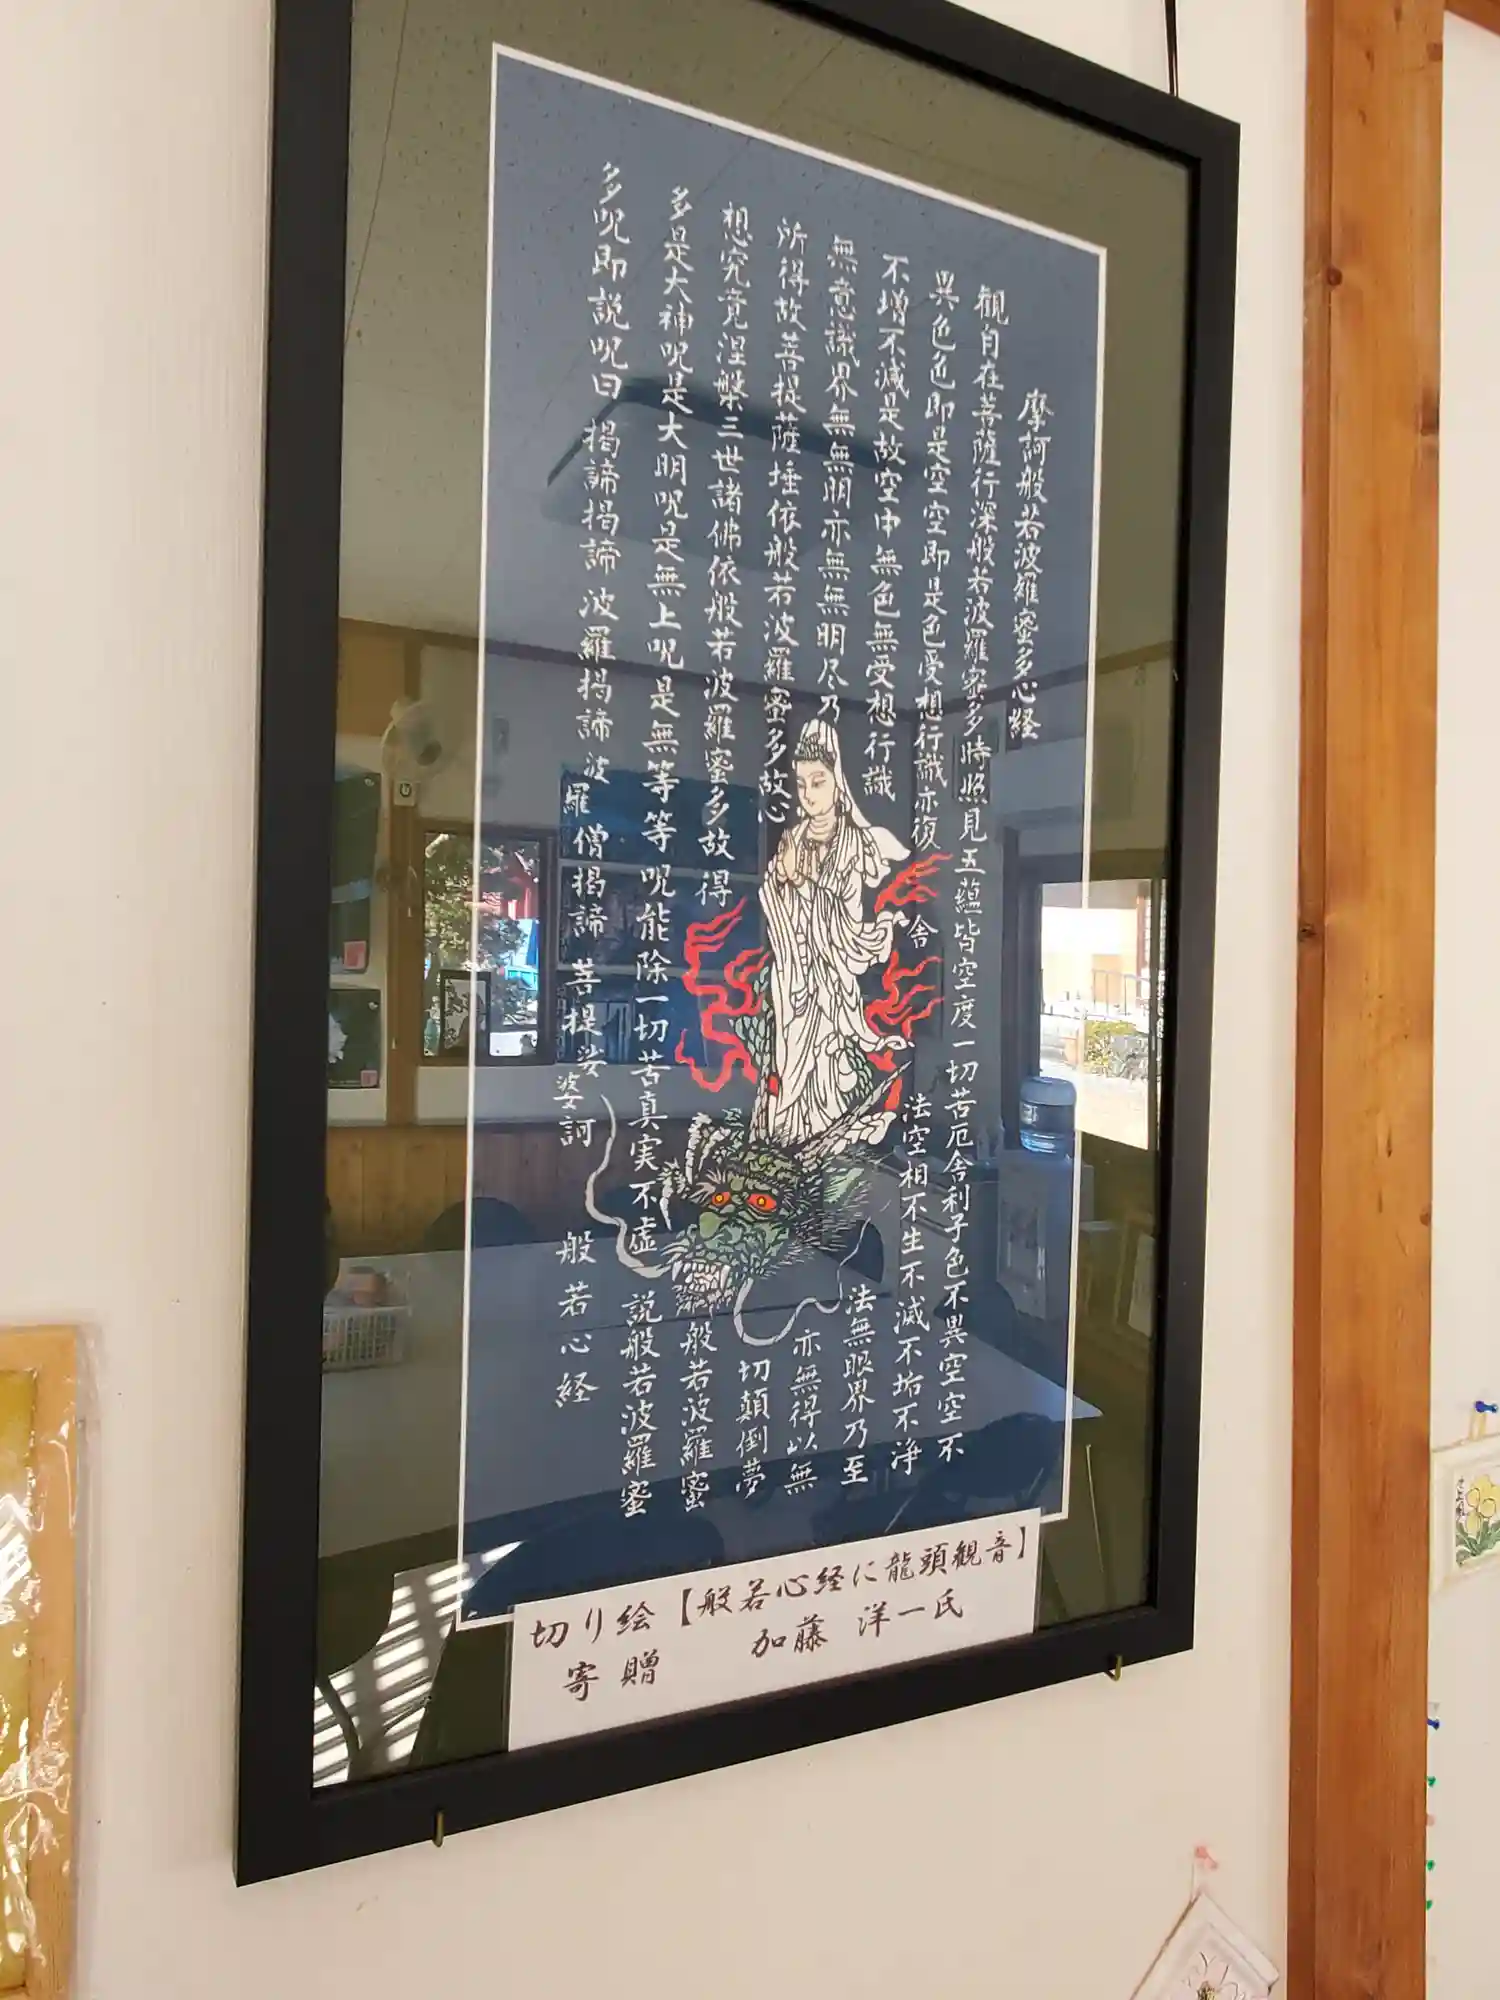 摩訶般若波羅蜜多心経
観自在菩薩行深般若波羅蜜多時照見五蘊皆空度一切苦厄舎利子色不異空空不
異色色即是空空即是色受想行識亦復 舎 法空相不生不滅不垢不浄
不増不減是故空中無色無受想行識 法無眼界乃至
無意識界無無明亦無無明尽乃 亦無得以無
所得故菩提薩埵依般若波羅蜜多故心 切顛倒夢
想究竟涅槃三世諸佛依般若波羅蜜多故得 般若波羅蜜
多是大神呪是大明呪是無上呪是無等等呪能除一切苦真実不虚 説般若波羅蜜
多呪即説呪曰 掲諦掲諦 波羅掲諦 波羅僧掲諦 菩提娑婆訶 般若心経
切り絵【般若心経に龍頭観音】
寄贈 加藤 洋一氏